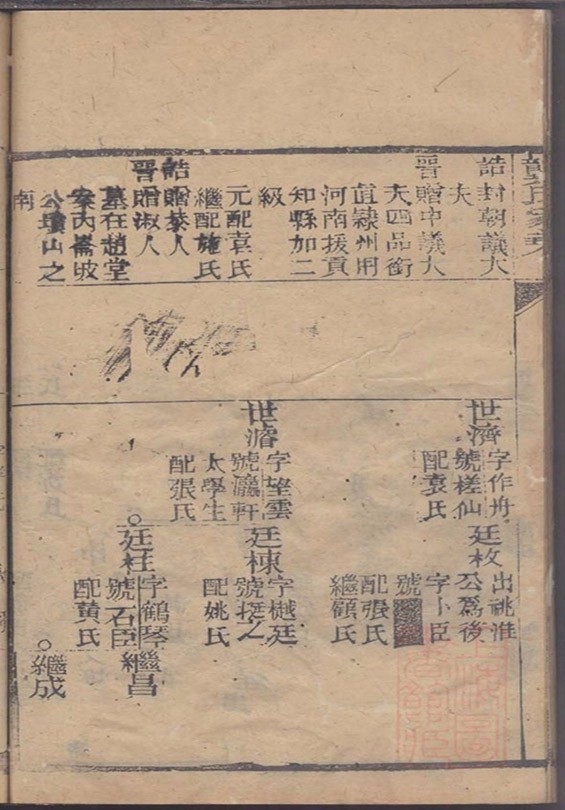 誥封朝議大
夫
晉贈中議大
夫四品銜
直隸州用
河南拔貢
知縣加二
級
元配袁氏
繼配施氏
誥贈恭人
晉贈淑人
墓在趙堂
案內嵩坡
公墳山之
南
世濟
字作舟
號槎仙
配袁氏
世濬
字望雲
號瀛軒
太學生
配張氏
廷枚
出祧淮
公爲後
字卜臣
號
配張氏
繼顧氏
廷棟
字樾廷
號挺之
配姚氏
廷柱
字鶴琴
號石臣
配黃氏
繼昌
繼成